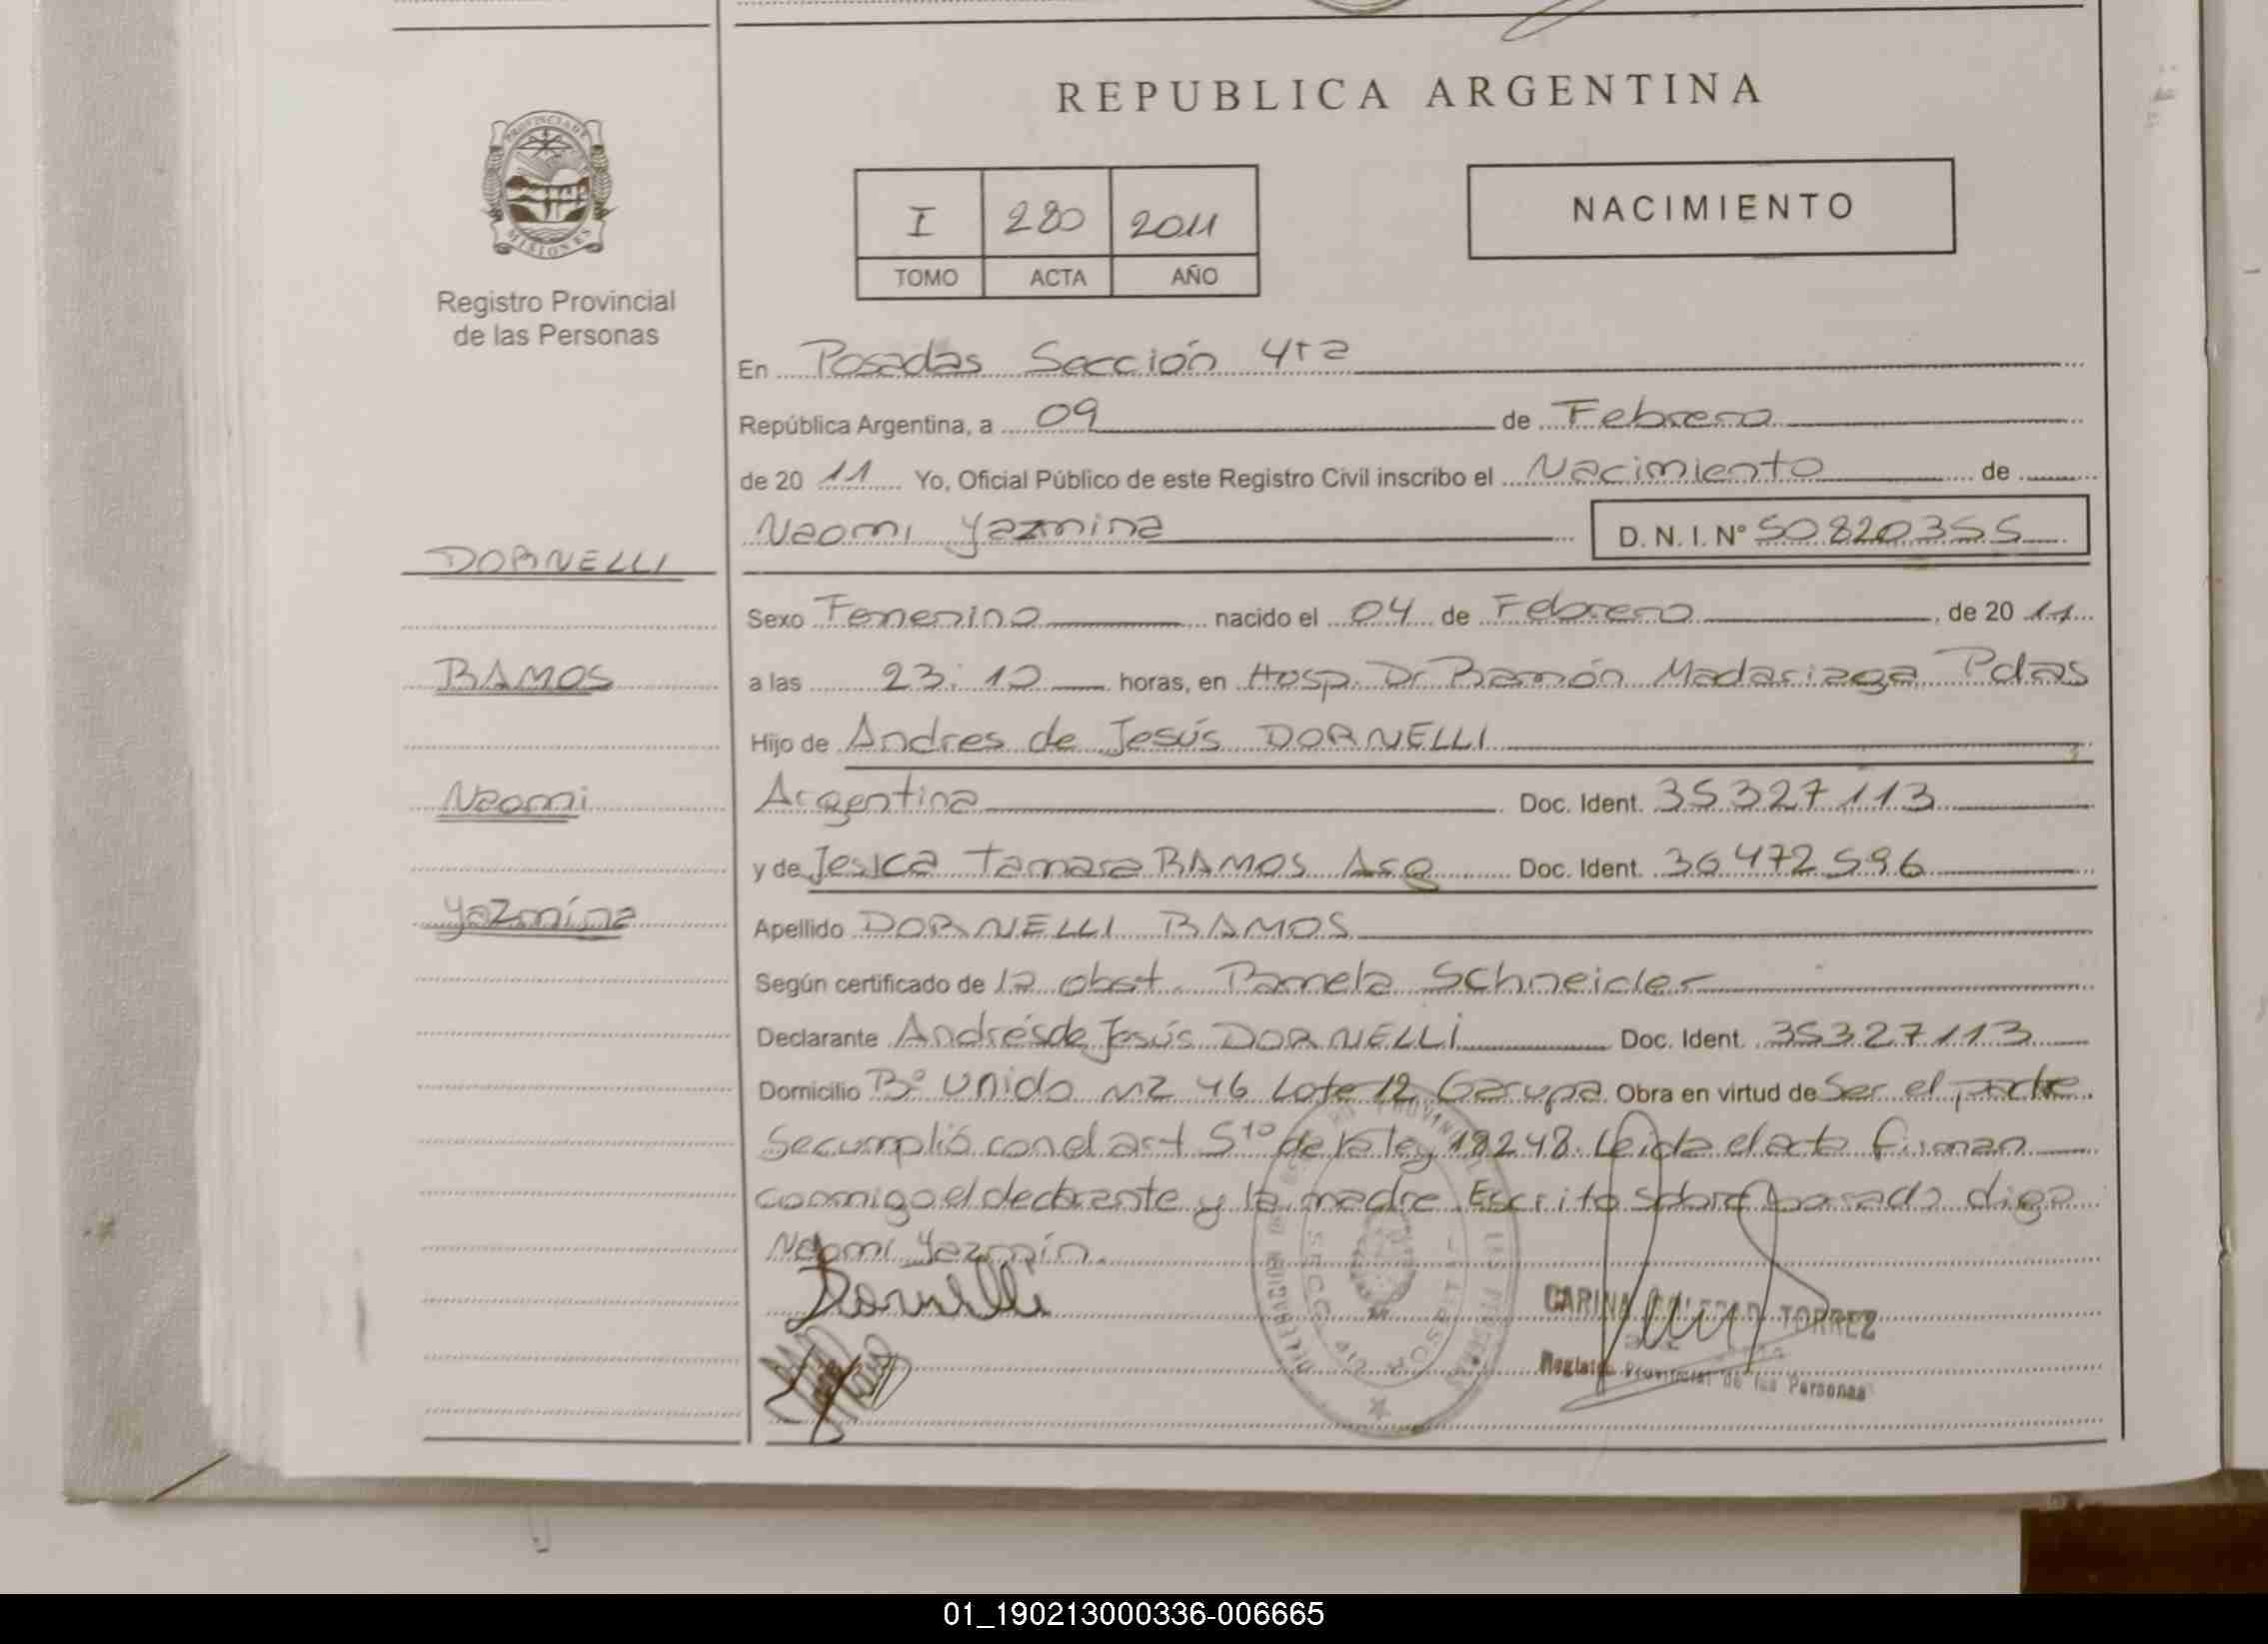 REPUBLICA ARGENTINA
PROVINCIA DE MISIONES
Registro Provincial
de las Personas
I 280 2011
TOMO ACTA AÑO
NACIMIENTO
En Posadas Sección 4ta
República Argentina, a 09 de Febrero
de 20 11 Yo, Oficial Público de este Registro Civil inscribo el Nacimiento de
Naomi Yazmina D. N. I. Nº 50820355
DORNELLI
RAMOS
Naomi
Yazmína
Sexo Femenino nacido el 04 de Febrero, de 20 11
a las 23:10 horas, en Hosp. Dr Ramón Madariaga Pdas
Hijo de Andres de Jesús DORNELLI
Argentina Doc. Ident. 35327113
y de Jesica Tamara RAMOS Arg Doc. Ident. 36472596
Apellido DORNELLI RAMOS
Según certificado de la obst. Pamela Schneider
Declarante Andrés de Jesús DORNELLI Doc. Ident. 35327113
Domicilio Bº Unido mz 46 Lote 12 Garupa Obra en virtud de Ser el padre.
Se cumplió con el art 5to de la ley 18248. Leida el acta firman
conmigo el declarante y la madre. Escrito sobre borrado digo
Naomi Yazmín.
Dornelli
CARINA SOLEDAD TORREZ
Registro Provincial de las Personas
01_190213000336-006665